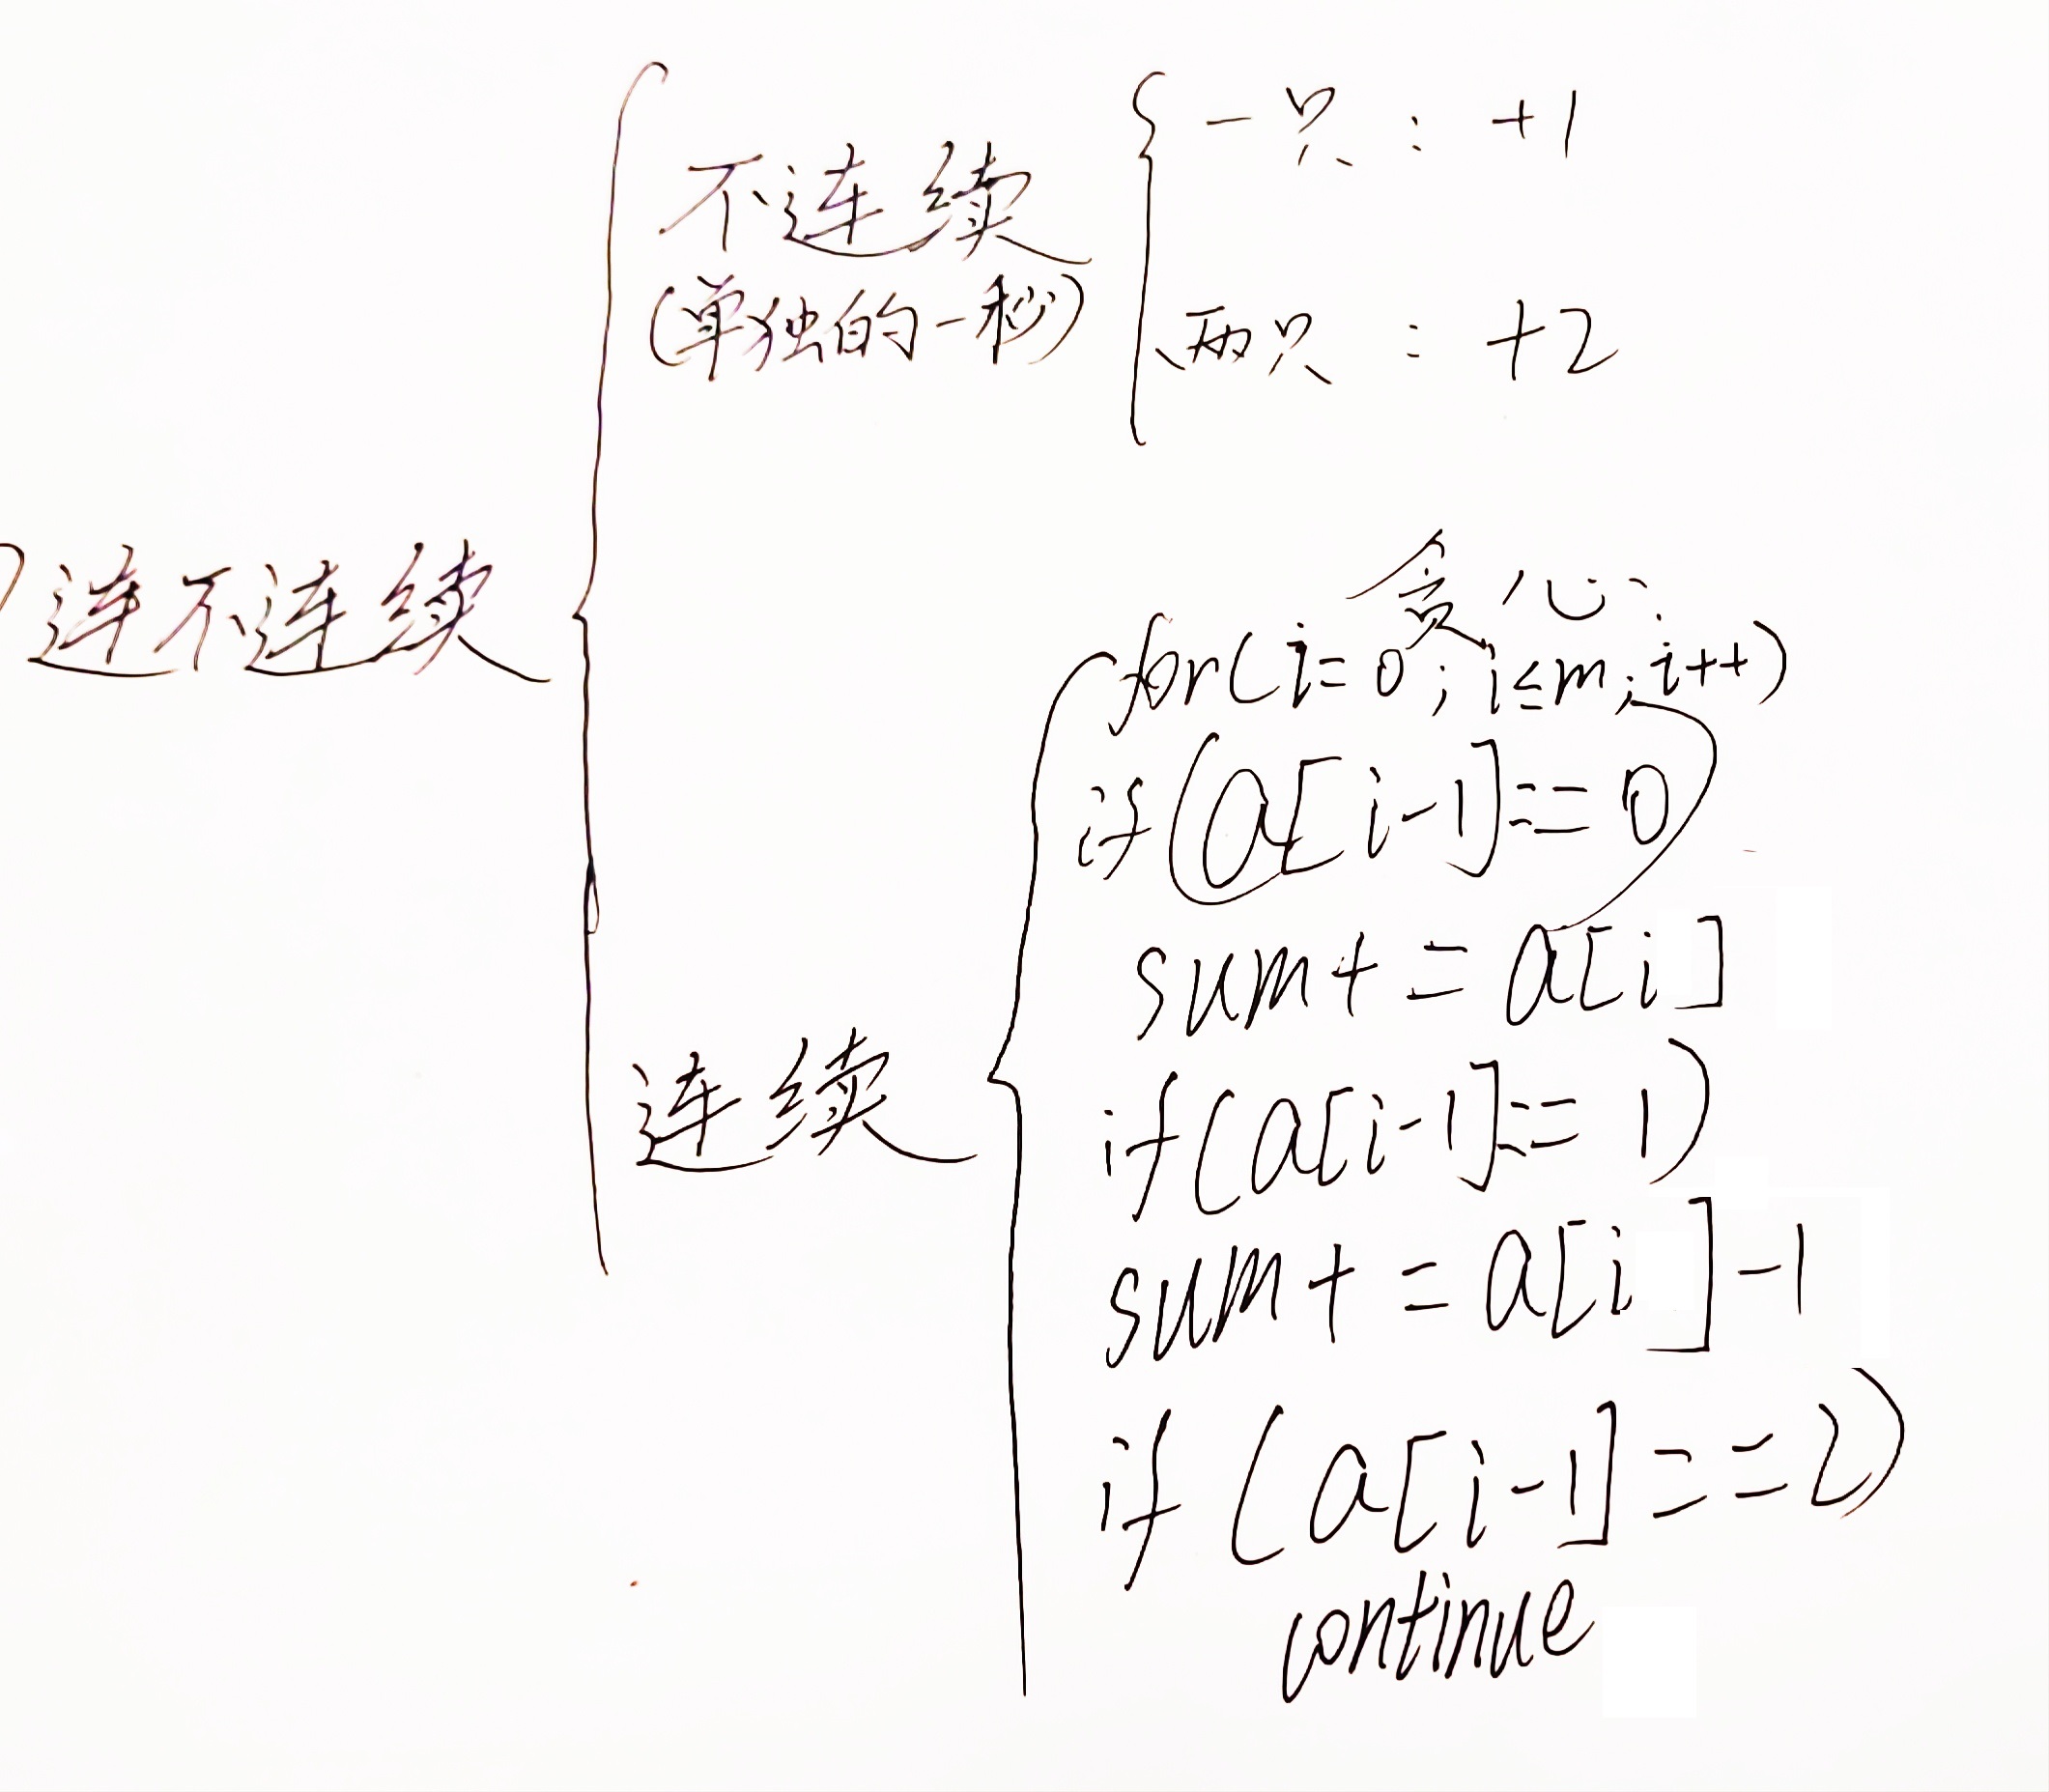 连不连续
不连续
(单独的一秒)
一只 : +1
两只 : +2
连续
贪心:
for(i=0; i≤m; i++)
if(a[i-1]==0)
sum+=a[i]
if(a[i-1]==1)
sum+=a[i]-1
if(a[i-1]==2)
continue